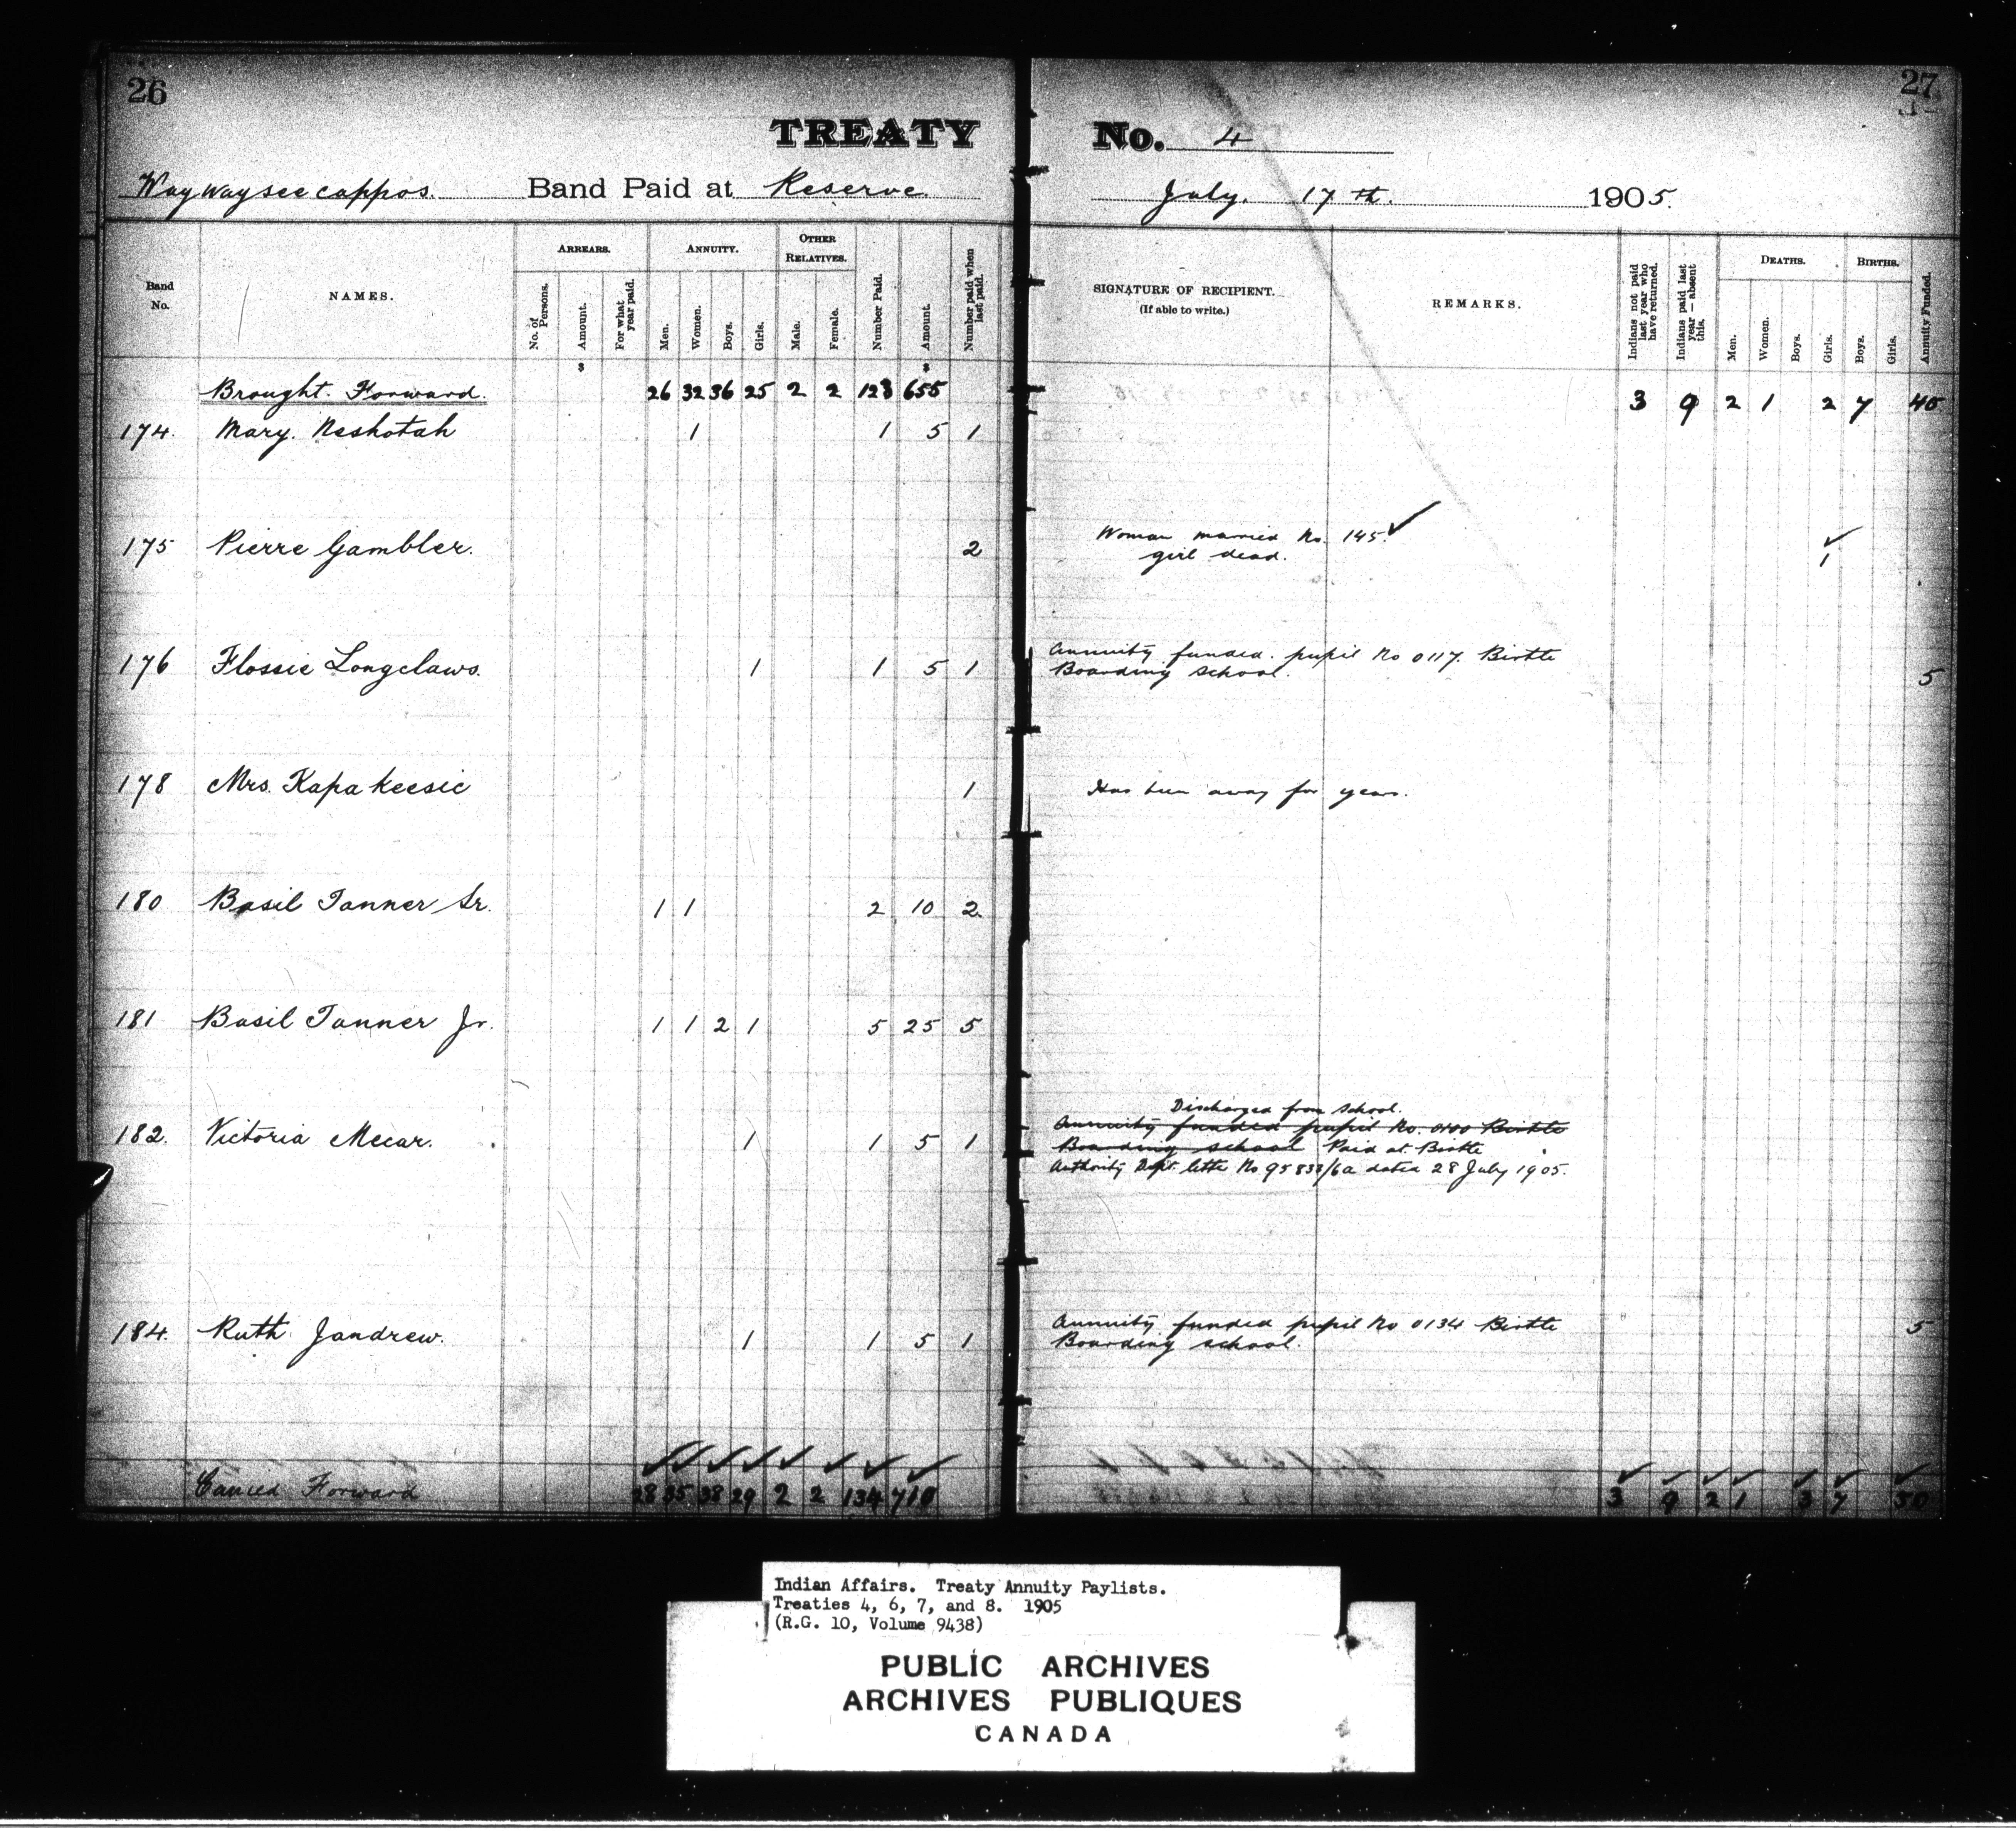 26
27
TREATY No. 4
Waywayseecappos. Band Paid at Reserve. July. 17th. 1905.
Band No.
NAMES.
ARREARS.
No. of Persons.
Amount.
For what year paid.
ANNUITY.
Men.
Women.
Boys.
Girls.
OTHER RELATIVES.
Male.
Female.
Number Paid.
Amount.
Number paid when last paid.
SIGNATURE OF RECIPIENT.
(If able to write.)
REMARKS.
Indians not paid last year who have returned.
Indians paid last year — absent this.
DEATHS.
Men.
Women.
Boys.
Girls.
BIRTHS.
Boys.
Girls.
Annuity Funded.
$ $
Brought Forward. 26 32 36 25 2 2 123 655 3 9 2 1 2 7 40
174. Mary. Neshotah 1 1 5 1
175 Pierre Gambler. 2 Woman married No. 145. ✓ ✓
girl dead. 1
176 Flossie Longclaws. 1 1 5 1 Annuity funded. pupil No 0117. Birtle
Boarding school. 5
178 Mrs. Kapakeesic 1 Has been away for years.
180 Basil Tanner Sr. 1 1 2 10 2
181 Basil Tanner Jr. 1 1 2 1 5 25 5
Discharged from School.
182. Victoria Mecar. 1 1 5 1 Annuity funded pupil No. 0100 Birtle
Boarding school Paid at Birtle
Authority Dept. letter No 95833/6a dated 28 July 1905.
184. Ruth Jandrew. 1 1 5 1 Annuity funded pupil No 0134 Birtle 5
Boarding school.
Carried Forward 28 35 38 29 2 2 134 710 3 9 2 1 3 7 50
Indian Affairs. Treaty Annuity Paylists.
Treaties 4, 6, 7, and 8. 1905
(R.G. 10, Volume 9438)
PUBLIC ARCHIVES
ARCHIVES PUBLIQUES
CANADA